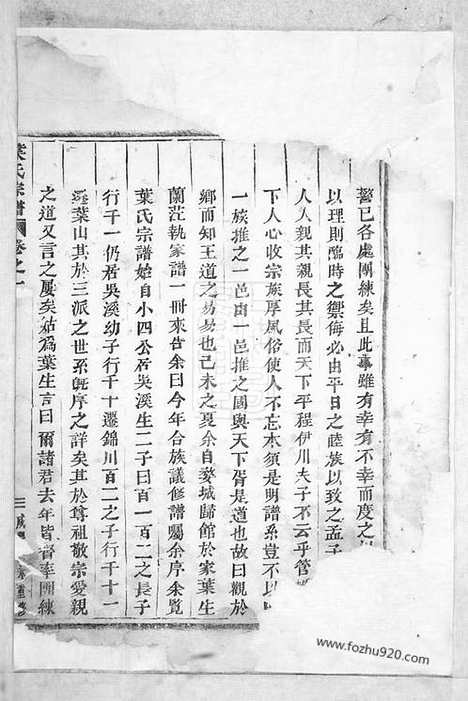 警已各處團練矣且此事雖有幸有不幸而度之
以理則臨時之禦侮必由平日之睦族以致之孟子
人人親其親長其長而天下平程伊川夫子不云乎管
下人心收宗族厚風俗使人不忘本須是明譜系豈不以
一族推之一邑由一邑推之國與天下胥是道也故曰觀於
鄉而知王道之易易也己未之夏余自婺城歸館於家葉生
蘭茳執家譜一冊來告余曰今年合族議修譜囑余序余覽
葉氏宗譜始自小四公居吳溪生二子曰百一百二之長子
行千一仍居吳溪幼子行千十遷錦川百二之子行千十一
遷葉山其於三派之世系既序之詳矣其於尊祖敬宗愛親
之道又言之屢矣姑為葉生言曰爾諸君去年皆督率團練
葉氏宗譜 卷之一
三 咸 重修
www.fozhu920.com